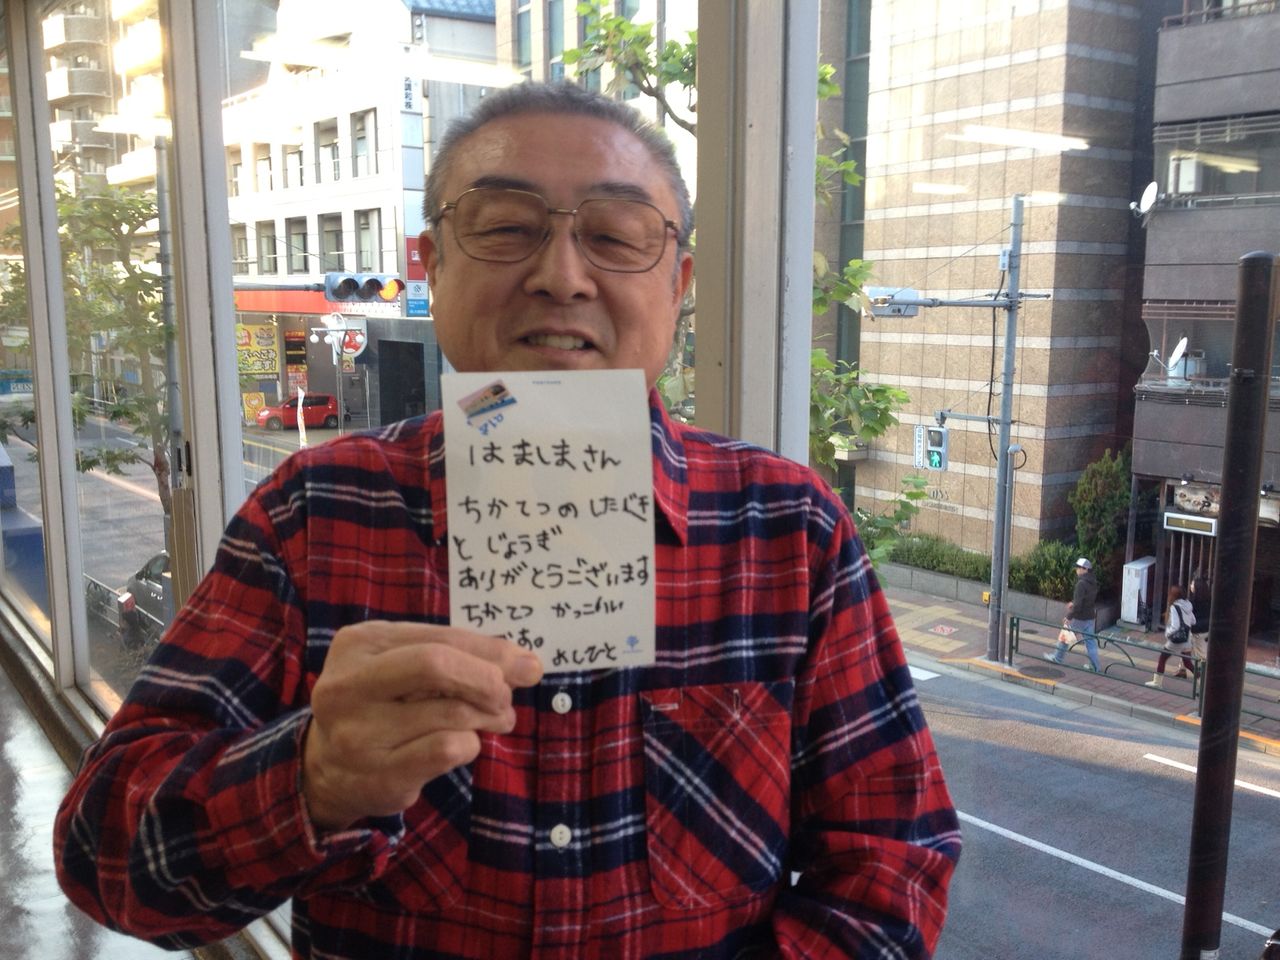 はましまさん
ちかてつの したじき
と じょうぎ
ありがとうございます
ちかてつ かっこいい
です。
よしひと